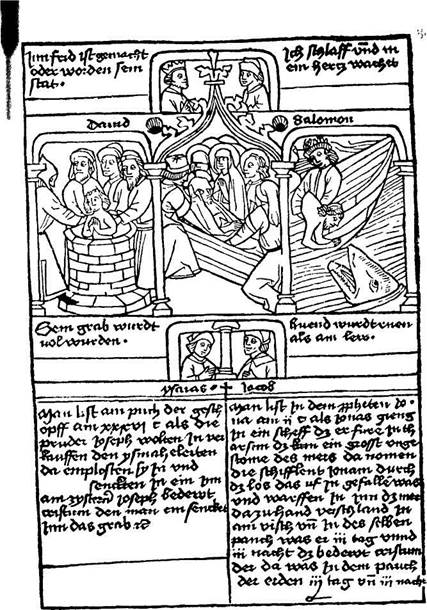 Im frid ist gemacht
oder worden sein
stat.
Ich schlaff vnd m
ein hertz wachet
Dauid
Salomon
Sein grab wurdt
vol wurden.
huend wurdt ruen
als am lew.
ysaias. Jacob
Man list am puch der gesch
opff am xxxvi t als die
prüder Joseph wolten In ver
kauffen den ysmaheleiten
da emplosten sy In vnd
sencken in ein
am Joseph bedewt
cristum den man ein sencket
Inn das grab rc
Man list In dem ppheten Jo
na am ii t als Jonas gieng
in ein scheff dz er fure In th
arsim dz kam ein gross vnge
stome des mers da nomen
die schifflent Jonam durch
dz los das vf In gefallē was
vnd warffen In Inn dz mer
da zuhand verschland In
am visch vn̄ In des selben
pauch was er iij tag vnnd
iij nacht dz bedewt cristum
der da was In dem pauch
der erden iij tag vn̄ iij nacht